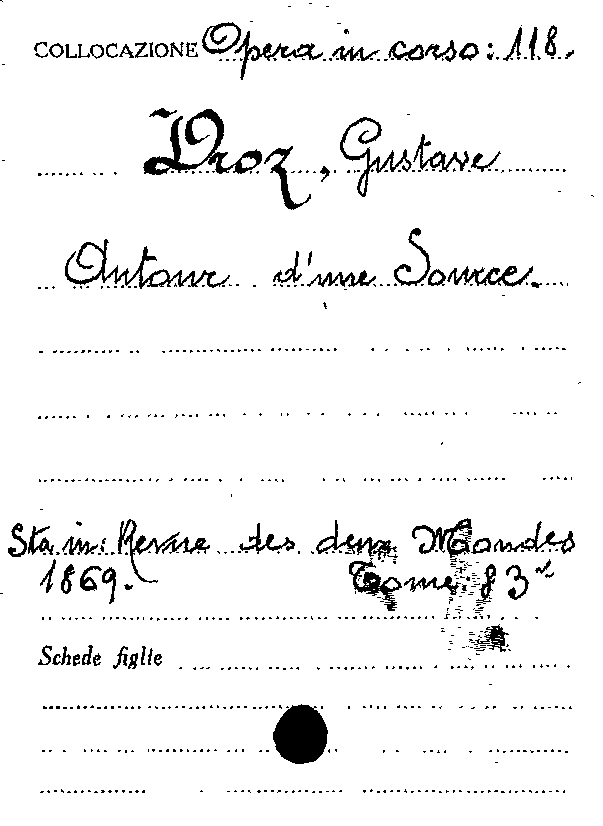 COLLOCAZIONE Opera in corso: 118.
Droz, Gustave
Autour d'une Source.
Sta in: Revue des deux Mondes
1869. Tome 83
Schede figlie